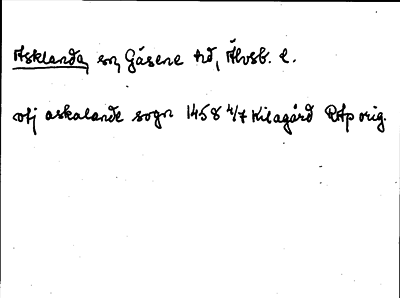 Asklanda, sn, Gäsene hd, Älvsb. l.
otj askalande sogn 1458 4/7 Kilagård RAp orig.